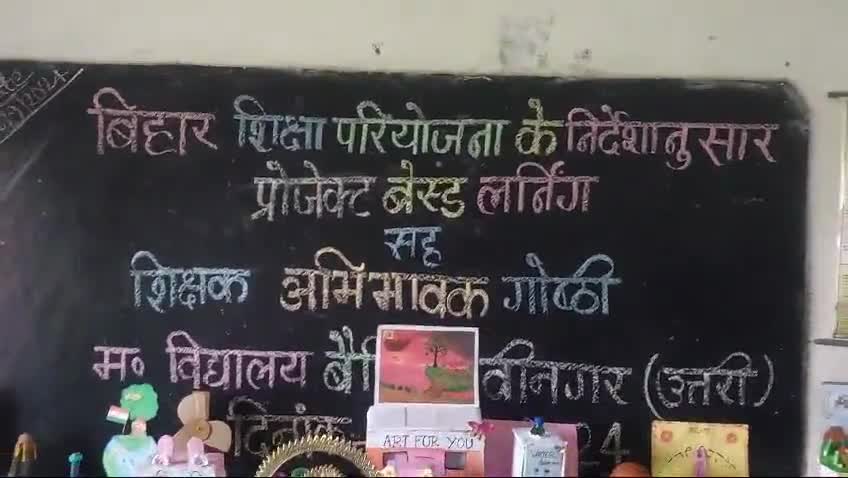 बिहार शिक्षा परियोजना के निर्देशानुसार
प्रोजेक्ट बेस्ड लर्निंग
सह
शिक्षक अभिभावक गोष्ठी
म० विद्यालय (उत्तरी)
दिनांक 24
ART FOR YOU